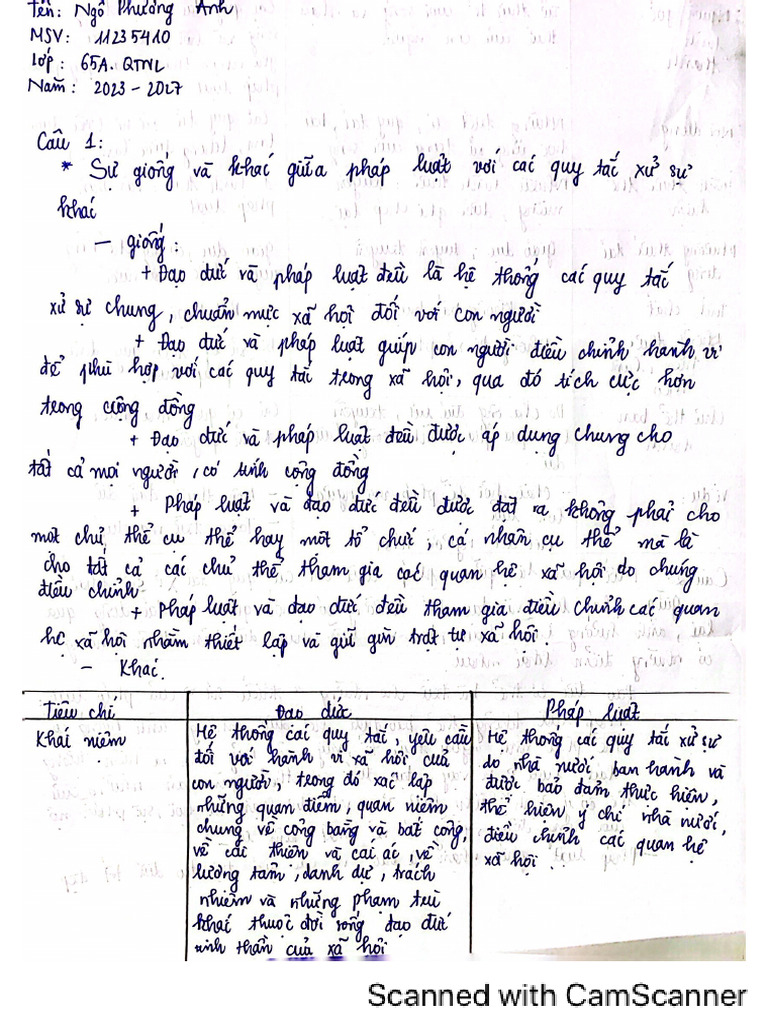 Tên: Ngô Phương Anh
MSV: 11235410
Lớp: 65A. QTNL
Năm: 2023 - 2027
Câu 1:
* Sự giống và khác giữa pháp luật với các quy tắc xử sự
khác
- giống:
+ Đạo đức và pháp luật đều là hệ thống các quy tắc
xử sự chung, chuẩn mực xã hội đối với con người
+ Đạo đức và pháp luật giúp con người điều chỉnh hành vi
để phù hợp với các quy tắc trong xã hội, qua đó tích cực hơn
trong cộng đồng
+ Đạo đức và pháp luật đều được áp dụng chung cho
tất cả mọi người, có tính cộng đồng
+ Pháp luật và đạo đức đều được đặt ra không phải cho
một chủ thể cụ thể hay một tổ chức, cá nhân cụ thể mà là
cho tất cả các chủ thể tham gia các quan hệ xã hội do chúng
điều chỉnh
+ Pháp luật và đạo đức đều tham gia điều chỉnh các quan
hệ xã hội nhằm thiết lập và giữ gìn trật tự xã hội,
- Khác.
Tiêu chí | Đạo đức | Pháp luật
Khái niệm
Hệ thống các quy tắc, yêu cầu
đối với hành vi xã hội của
con người, trong đó xác lập
những quan điểm, quan niệm
chung về công bằng và bất công,
về cái thiện và cái ác, về
lương tâm, danh dự, trách
nhiệm và những phạm trù
khác thuộc đời sống đạo đức
tinh thần của xã hội
Hệ thống các quy tắc xử sự
do nhà nước ban hành và
được bảo đảm thực hiện,
thể hiện ý chí nhà nước,
điều chỉnh các quan hệ
xã hội.
Scanned with CamScanner